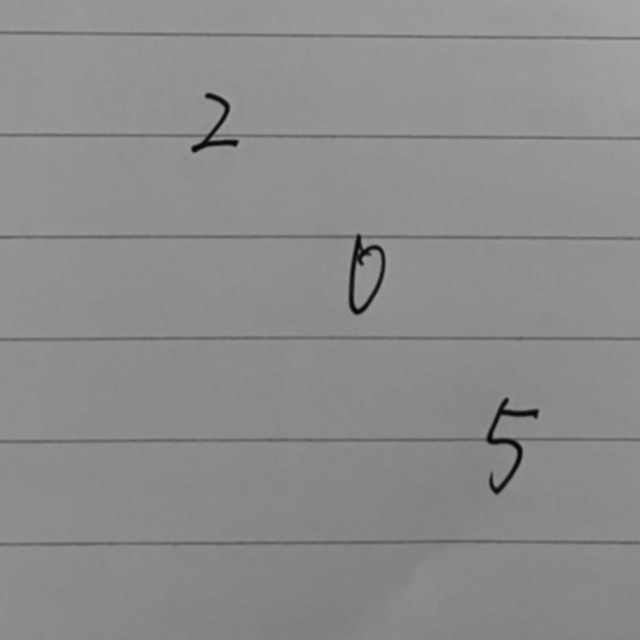 2
0
5